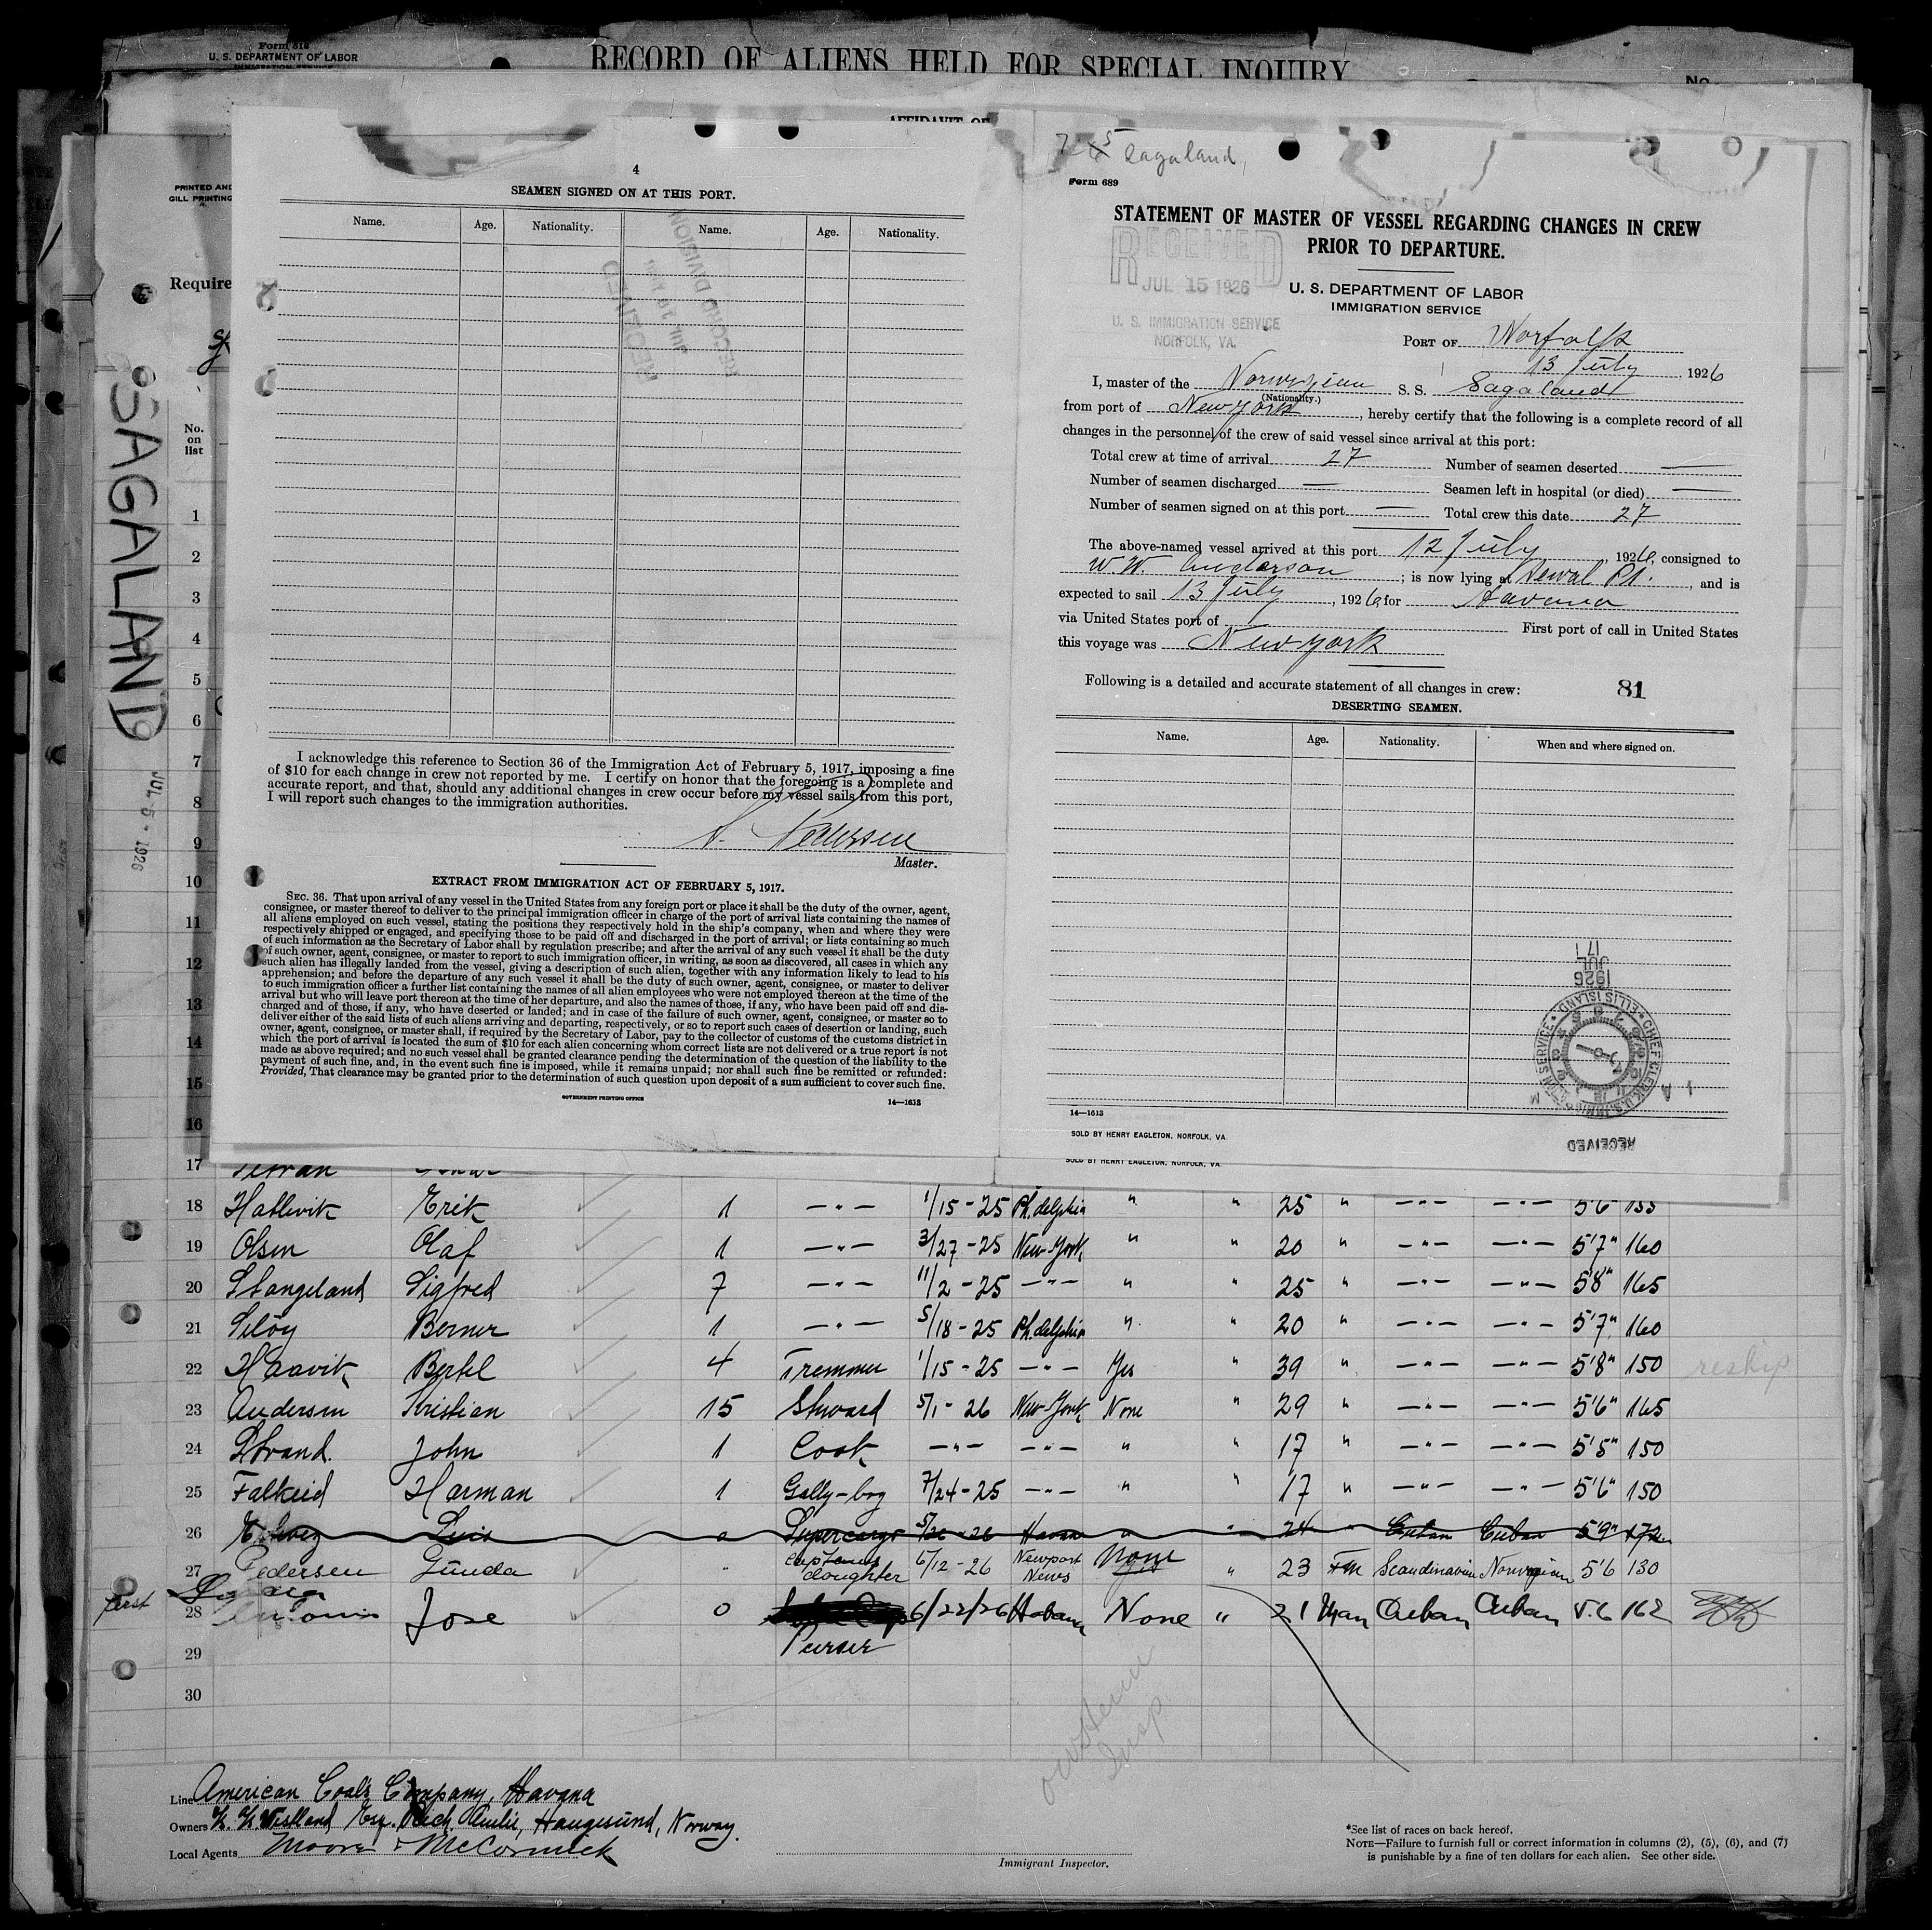 Form 518
U. S. DEPARTMENT OF LABOR
IMMIGRATION SERVICE
RECORD OF ALIENS HELD FOR SPECIAL INQUIRY
No.
AFFIDAVIT OF
PRINTED AND
GILL PRINTING
Require
No.
on
list
SAGALAND
JUL 5 - 1926
4
SEAMEN SIGNED ON AT THIS PORT.
Name. Age. Nationality. Name. Age. Nationality.
RECEIVED
JUL
RECORD DIVISION
I acknowledge this reference to Section 36 of the Immigration Act of February 5, 1917, imposing a fine
of $10 for each change in crew not reported by me. I certify on honor that the foregoing is a complete and
accurate report, and that, should any additional changes in crew occur before my vessel sails from this port,
I will report such changes to the immigration authorities.
Pedersen
Master.
EXTRACT FROM IMMIGRATION ACT OF FEBRUARY 5, 1917.
SEC. 36. That upon arrival of any vessel in the United States from any foreign port or place it shall be the duty of the owner, agent,
consignee, or master thereof to deliver to the principal immigration officer in charge of the port of arrival lists containing the names of
all aliens employed on such vessel, stating the positions they respectively hold in the ship's company, when and where they were
respectively shipped or engaged, and specifying those to be paid off and discharged in the port of arrival; or lists containing so much
of such information as the Secretary of Labor shall by regulation prescribe; and after the arrival of any such vessel it shall be the duty
of such owner, agent, consignee, or master to report to such immigration officer, in writing, as soon as discovered, all cases in which any
such alien has illegally landed from the vessel, giving a description of such alien, together with any information likely to lead to his
apprehension; and before the departure of any such vessel it shall be the duty of such owner, agent, consignee, or master to deliver
to such immigration officer a further list containing the names of all alien employees who were not employed thereon at the time of the
arrival but who will leave port thereon at the time of her departure, and also the names of those, if any, who have been paid off and dis-
charged and of those, if any, who have deserted or landed; and in case of the failure of such owner, agent, consignee, or master so to
deliver either of the said lists of such aliens arriving and departing, respectively, or so to report such cases of desertion or landing, such
owner, agent, consignee, or master shall, if required by the Secretary of Labor, pay to the collector of customs of the customs district in
which the port of arrival is located the sum of $10 for each alien concerning whom correct lists are not delivered or a true report is not
made as above required; and no such vessel shall be granted clearance pending the determination of the question of the liability to the
payment of such fine, and, in the event such fine is imposed, while it remains unpaid; nor shall such fine be remitted or refunded:
Provided, That clearance may be granted prior to the determination of such question upon deposit of a sum sufficient to cover such fine.
GOVERNMENT PRINTING OFFICE 14—1613
Sagaland,
Form 689
STATEMENT OF MASTER OF VESSEL REGARDING CHANGES IN CREW
PRIOR TO DEPARTURE.
RECEIVED
JUL 15 1926
U. S. IMMIGRATION SERVICE
NORFOLK, VA.
U. S. DEPARTMENT OF LABOR
IMMIGRATION SERVICE
PORT OF Norfolk
13 July 1926
I, master of the Norwegian S. S. Sagaland
(Nationality.)
from port of New York, hereby certify that the following is a complete record of all
changes in the personnel of the crew of said vessel since arrival at this port:
Total crew at time of arrival 27 Number of seamen deserted —
Number of seamen discharged — Seamen left in hospital (or died) —
Number of seamen signed on at this port — Total crew this date 27
The above-named vessel arrived at this port 12 July, 1926, consigned to
W. W. Anderson; is now lying at Sewal Pt., and is
expected to sail 13 July, 1926, for Havana
via United States port of First port of call in United States
this voyage was New York
Following is a detailed and accurate statement of all changes in crew: 81
DESERTING SEAMEN.
Name. Age. Nationality. When and where signed on.
JUL 17 1926
CHIEF CLERK, U.S. IMMIGRATION SERVICE ELLIS ISLAND
RECEIVED
14—1613
SOLD BY HENRY EAGLETON, NORFOLK, VA.
SOLD BY HENRY EAGLETON, NORFOLK, VA.
1
2
3
4
5
6
7
8
9
10
11
12
13
14
15
16
17
18 Hatlevik Erik 1 —"— 1/15-25 Ph.delphia " " 25 " —"— —"— 5'6" 155
19 Olsen Olaf 1 —"— 3/27-25 New-York " " 20 " —"— —"— 5'7" 160
20 Stangeland Sigfred 7 —"— 11/2-25 —"— " " 25 " —"— —"— 5'8" 165
21 Selöy Berner 1 —"— 5/18-25 Ph.delphia " " 20 " —"— —"— 5'7" 160
22 Haavik Bertel 4 Tremmer 1/15-25 —"— Yes " 39 " —"— —"— 5'8" 150 reship
23 Andersen Kristian 15 Steward 5/1-26 New-York None " 29 " —"— —"— 5'6" 165
24 Strand. John 1 Cook —"— —"— " " 17 " —"— —"— 5'5" 150
25 Falkeid Harman 1 Gally-boy 7/24-25 —"— " " 17 " —"— —"— 5'6" 150
26 Luis Supercargo 26 Havana " " 24 " Cuban Cuban 5'9" 172
27 Pedersen Gunda " Captains daughter 6/12-26 Newport News None " 23 Fm Scandinavian Norwegian 5'6 130
first
28 Jose 0 6/22/26 Habana None " 21 Man Cuban Cuban 5.6 162
Purser
29
30
Insp.
Line American Coal's Company, Havana
Owners Haugesund, Norway.
Local Agents Moore & McCormick
Immigrant Inspector.
*See list of races on back hereof.
NOTE—Failure to furnish full or correct information in columns (2), (5), (6), and (7)
is punishable by a fine of ten dollars for each alien. See other side.